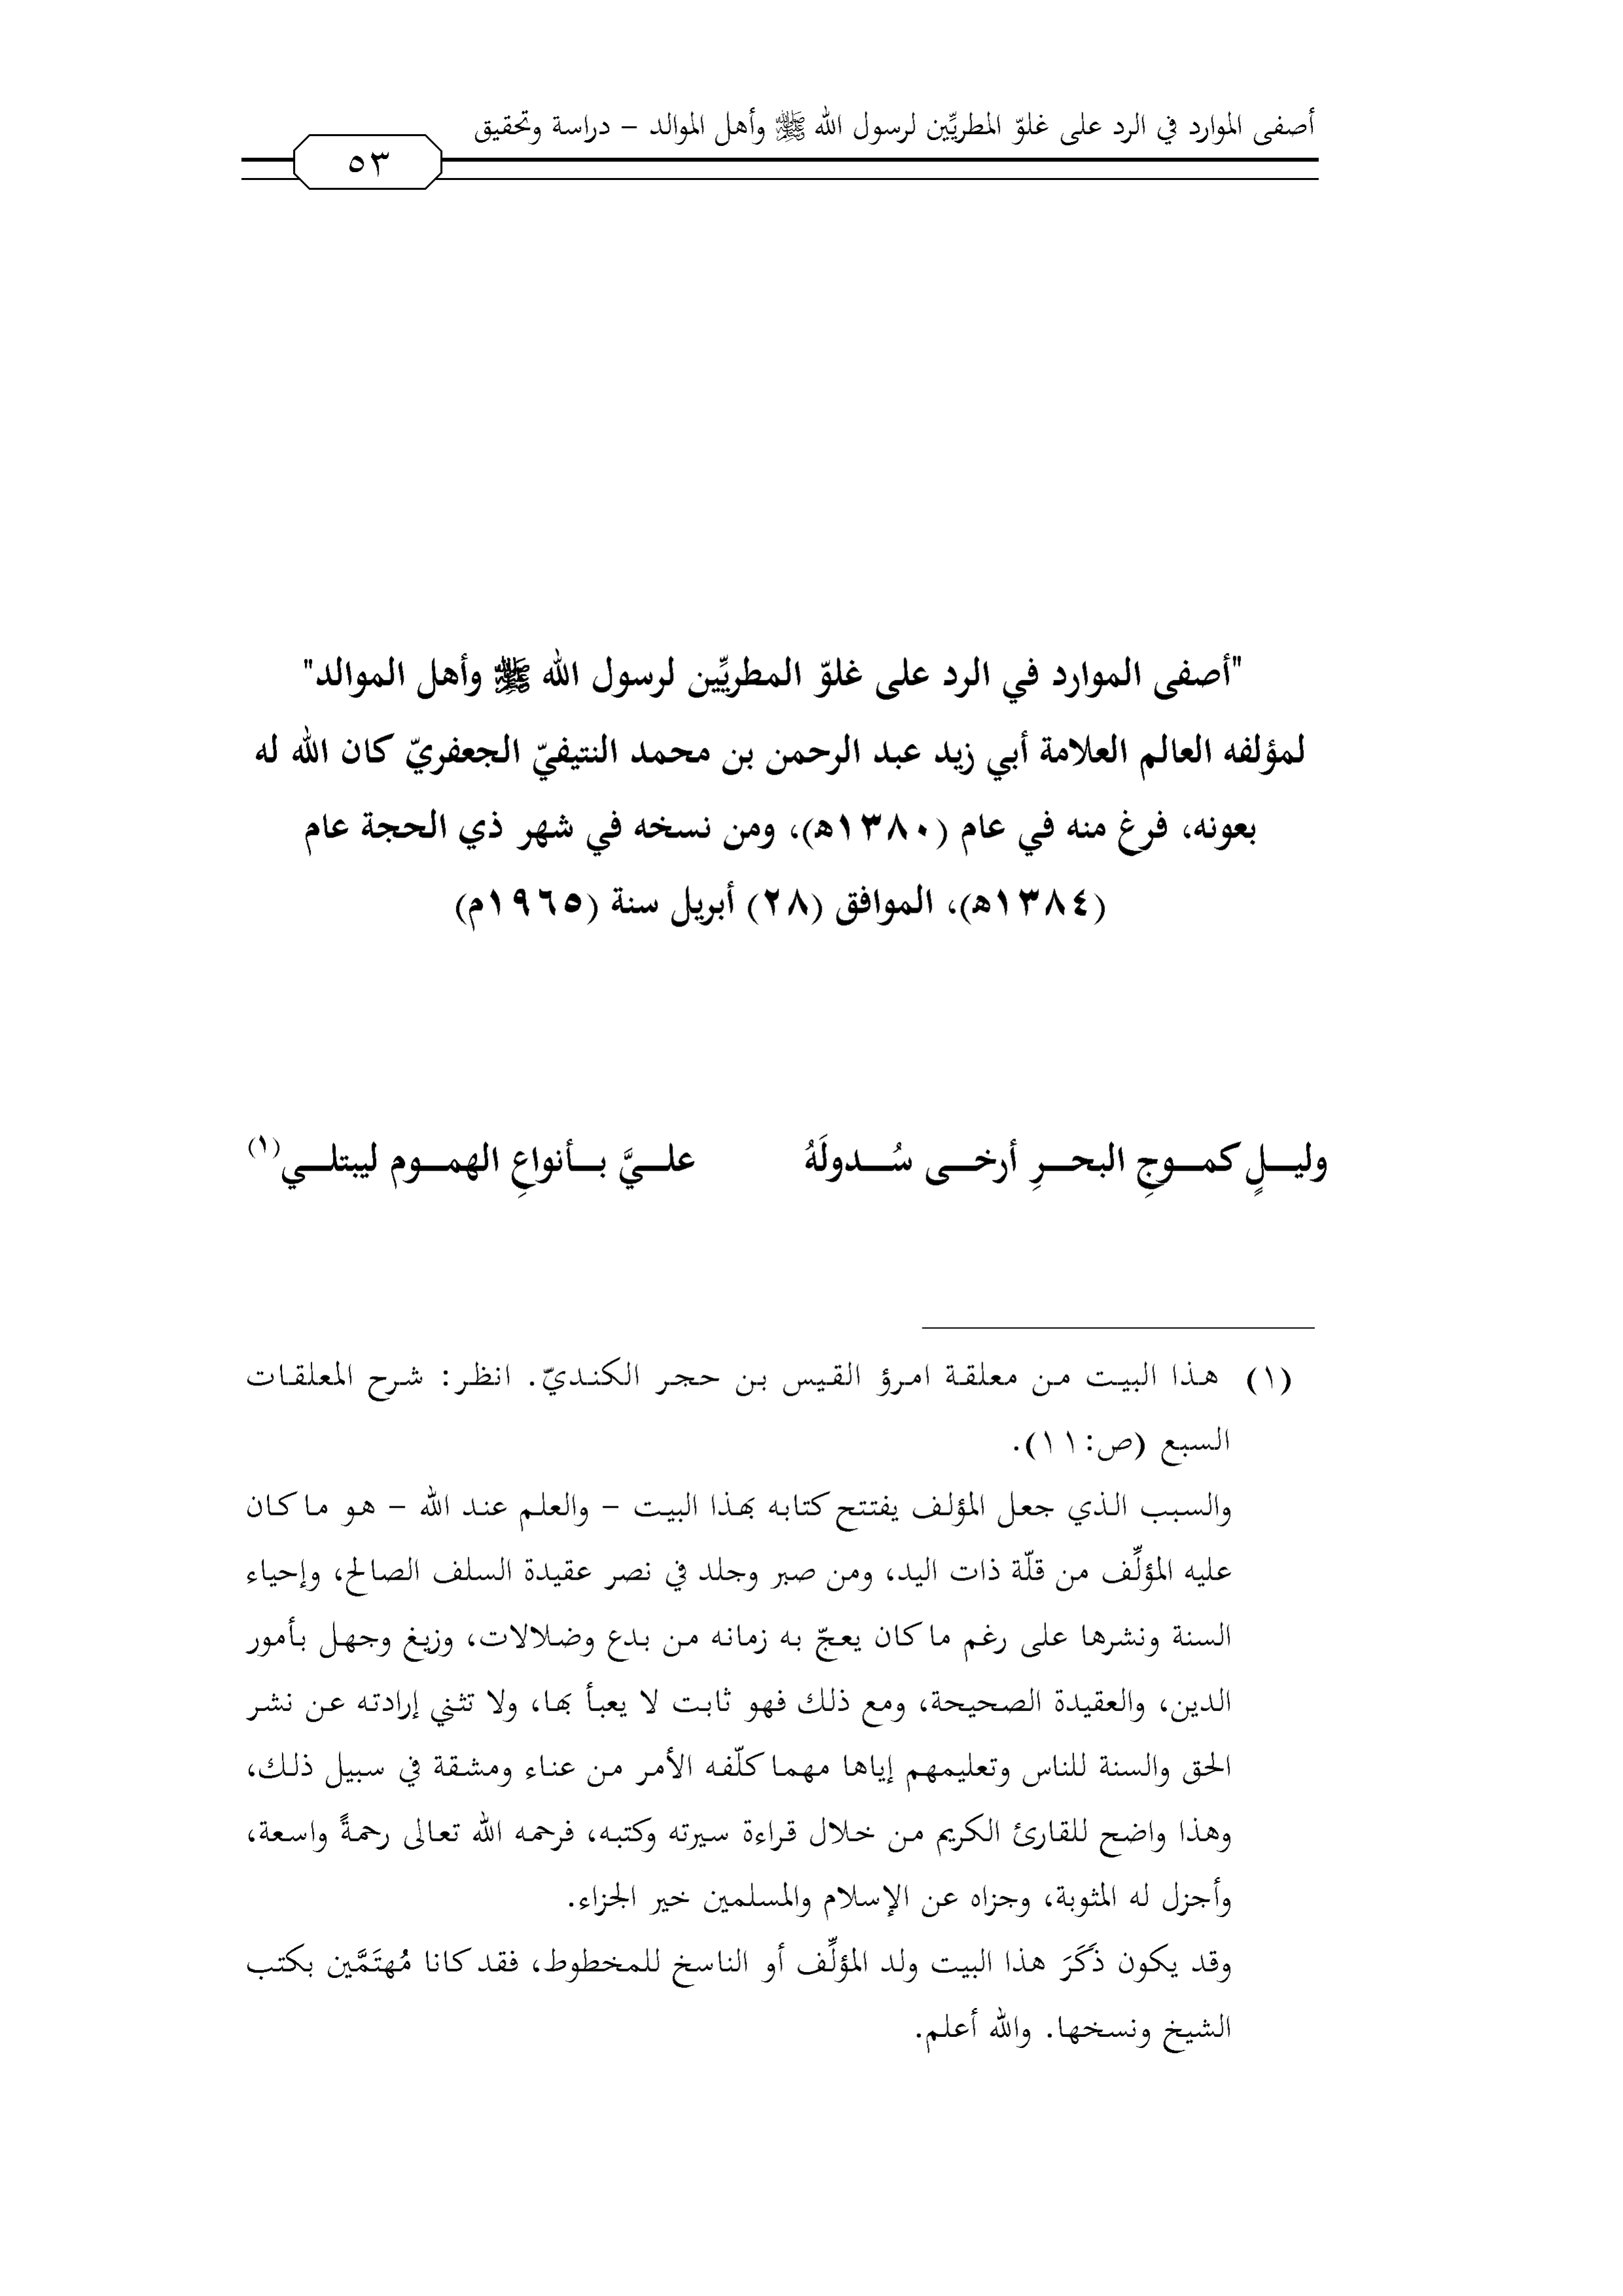 أصفى الموارد في الرد على غلوّ المطريِّين لرسول الله ﷺ وأهل الموالد – دراسة وتحقيق
٥٣
"أصفى الموارد في الرد على غلوّ المطريِّين لرسول الله ﷺ وأهل الموالد"
لمؤلفه العالم العلامة أبي زيد عبد الرحمن بن محمد النتيفيّ الجعفريّ كان الله له
بعونه، فرغ منه في عام (١٣٨٠هـ)، ومن نسخه في شهر ذي الحجة عام
(١٣٨٤هـ)، الموافق (٢٨) أبريل سنة (١٩٦٥م)
وليلٍ كموجِ البحرِ أرخى سُدولَهُ عليَّ بأنواعِ الهموم ليبتلي(١)
(١) هذا البيت من معلقة امرؤ القيس بن حجر الكنديّ. انظر: شرح المعلقات
السبع (ص:١١).
والسبب الذي جعل المؤلف يفتتح كتابه بهذا البيت – والعلم عند الله – هو ما كان
عليه المؤلِّف من قلّة ذات اليد، ومن صبر وجلد في نصر عقيدة السلف الصالح، وإحياء
السنة ونشرها على رغم ما كان يعجّ به زمانه من بدع وضلالات، وزيغ وجهل بأمور
الدين، والعقيدة الصحيحة، ومع ذلك فهو ثابت لا يعبأ بها، ولا تثني إرادته عن نشر
الحق والسنة للناس وتعليمهم إياها مهما كلّفه الأمر من عناء ومشقة في سبيل ذلك،
وهذا واضح للقارئ الكريم من خلال قراءة سيرته وكتبه، فرحمه الله تعالى رحمةً واسعة،
وأجزل له المثوبة، وجزاه عن الإسلام والمسلمين خير الجزاء.
وقد يكون ذَكَرَ هذا البيت ولد المؤلِّف أو الناسخ للمخطوط، فقد كانا مُهتَمَّين بكتب
الشيخ ونسخها. والله أعلم.